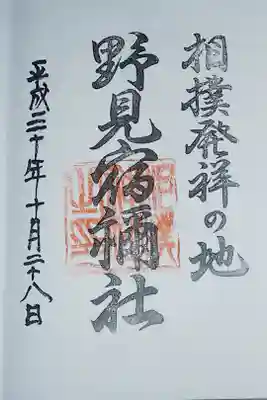 相撲発祥の地
野見宿禰社
平成二十年十月二十八日